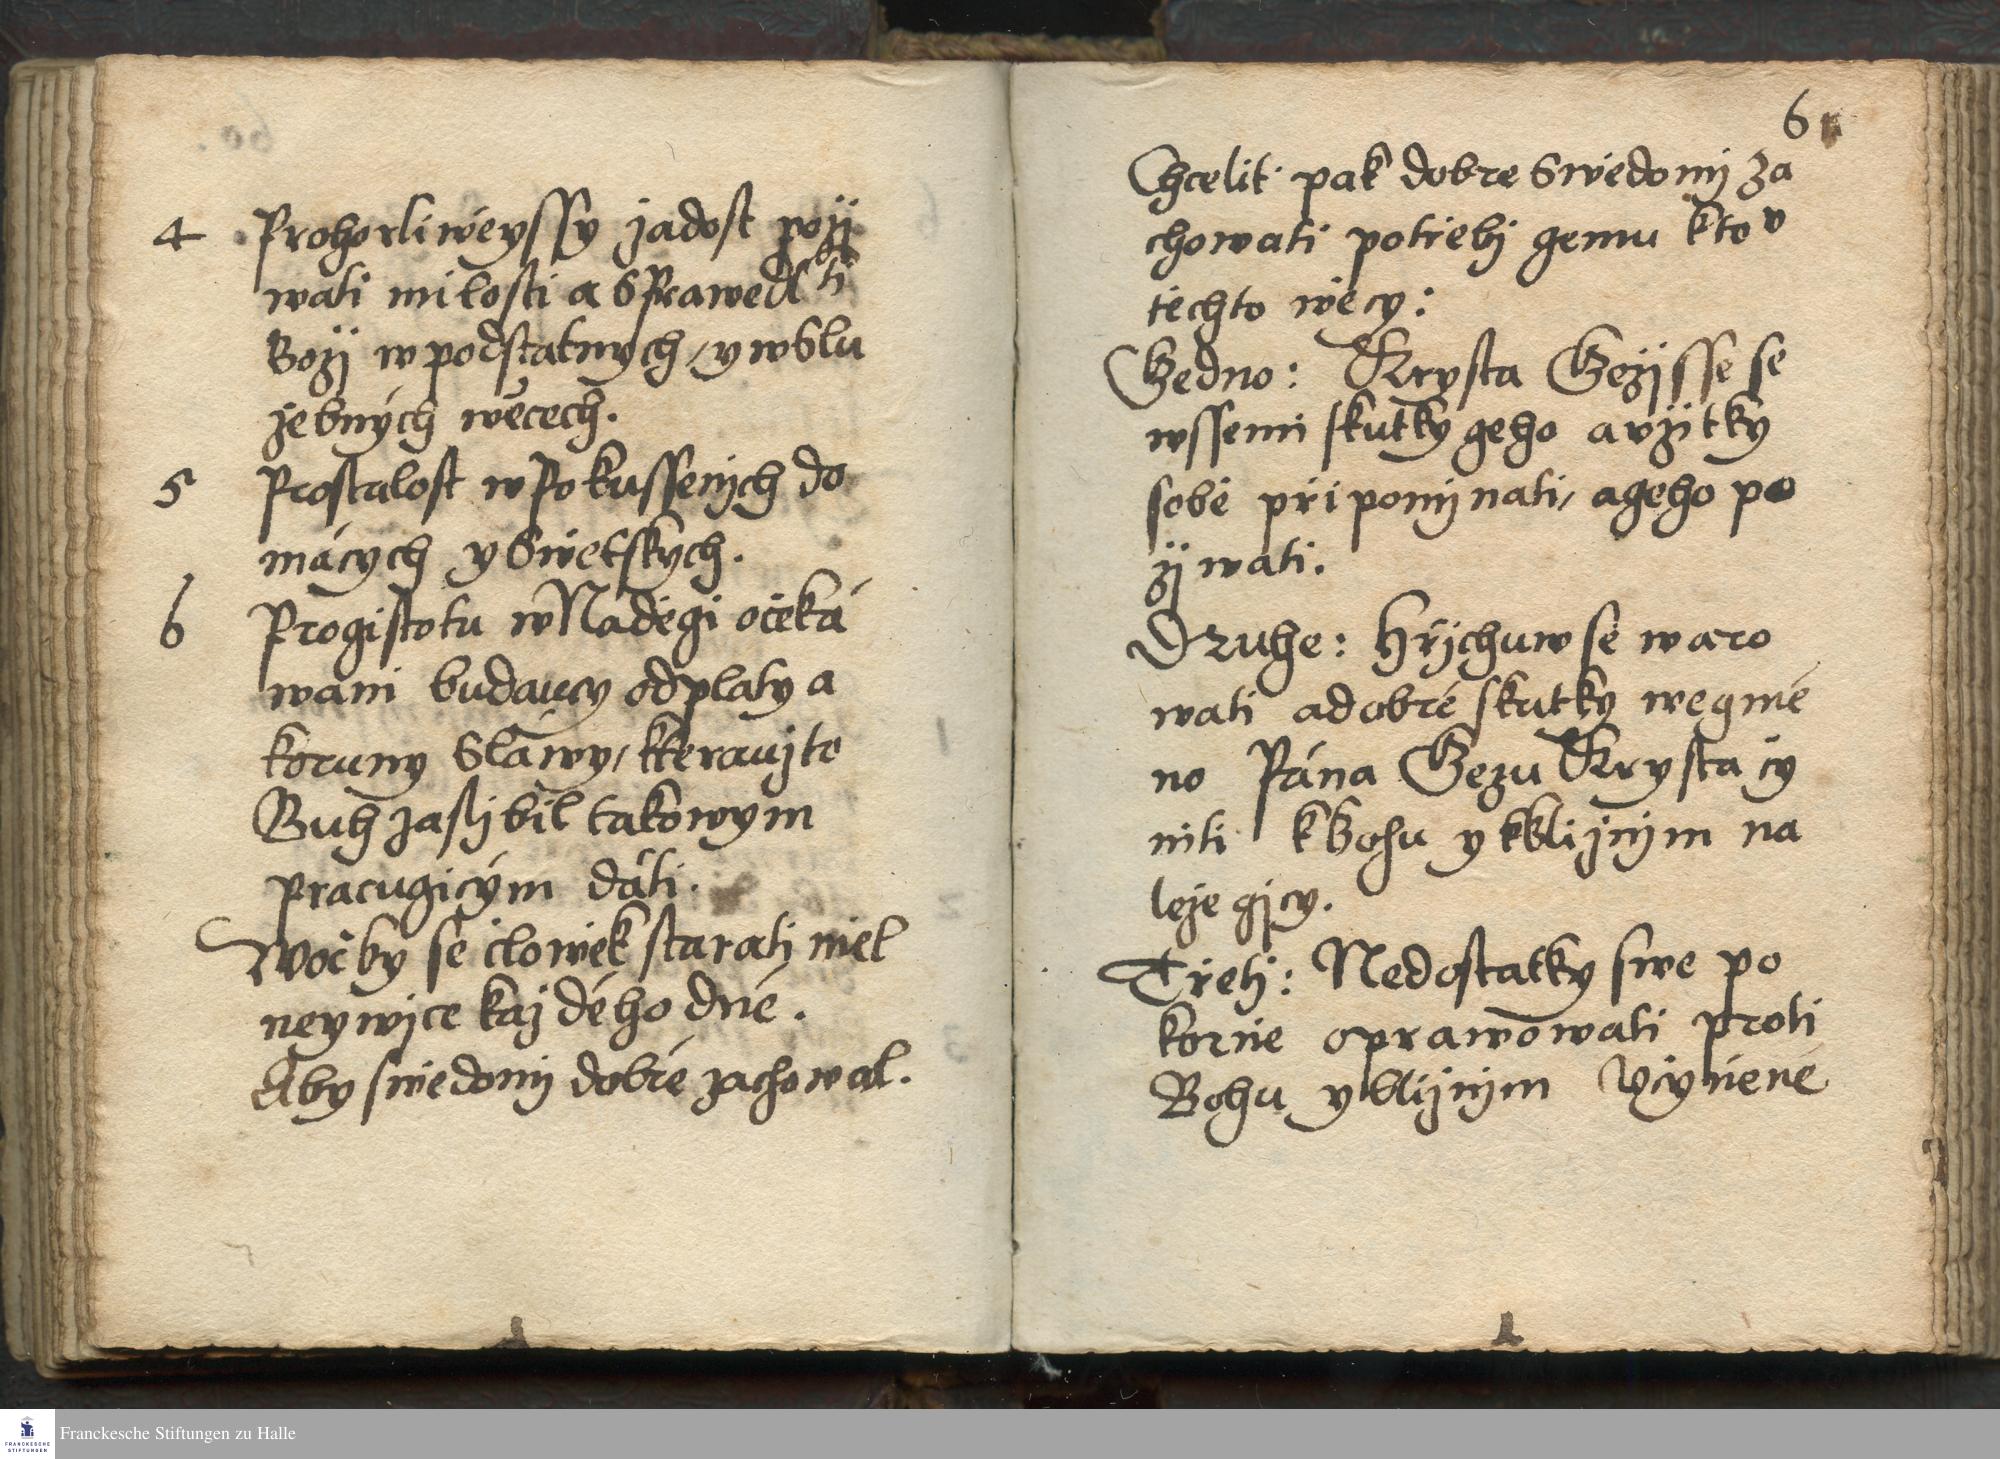 4 Prohorliweyssy żadost pożj
wati milosti a Sprawedlti
Bożj w podstatnych, y w Slu
żebných wěcech.
5 Prostalost w Pokussenjch do
mácych y Swětskych.
6 Pro gistotu w Naděgi očeká
wani budaucy odplaty a
koruny Sláwy, kteraużto
Buh zasljbil takowym
pracugicým dáti.
Woč by se člowěk starati měl
neywjce každého dne.
Aby swědomj dobré zachowal.
61
Chceliť pak dobre Swědomj za
chowati potřebj gemu k to v
těchto wěcy:
Gedno: Krysta Gežjsse se
wssemi skutky geho a vžitky
sobě připomjnati, a geho po
žjwati.
Druhe: Hřjchuw se waro
wati a dobré skutky we gmé
no Pána Gezu Krysta čy
niti k Bohu y k bližnjm na
ležegjcy.
Třetj: Nedostatky swe po
korně oprawowati proti
Bohu y bližnjm Včyněné
Franckesche Stiftungen zu Halle
FRANCKESCHE
STIFTUNGEN